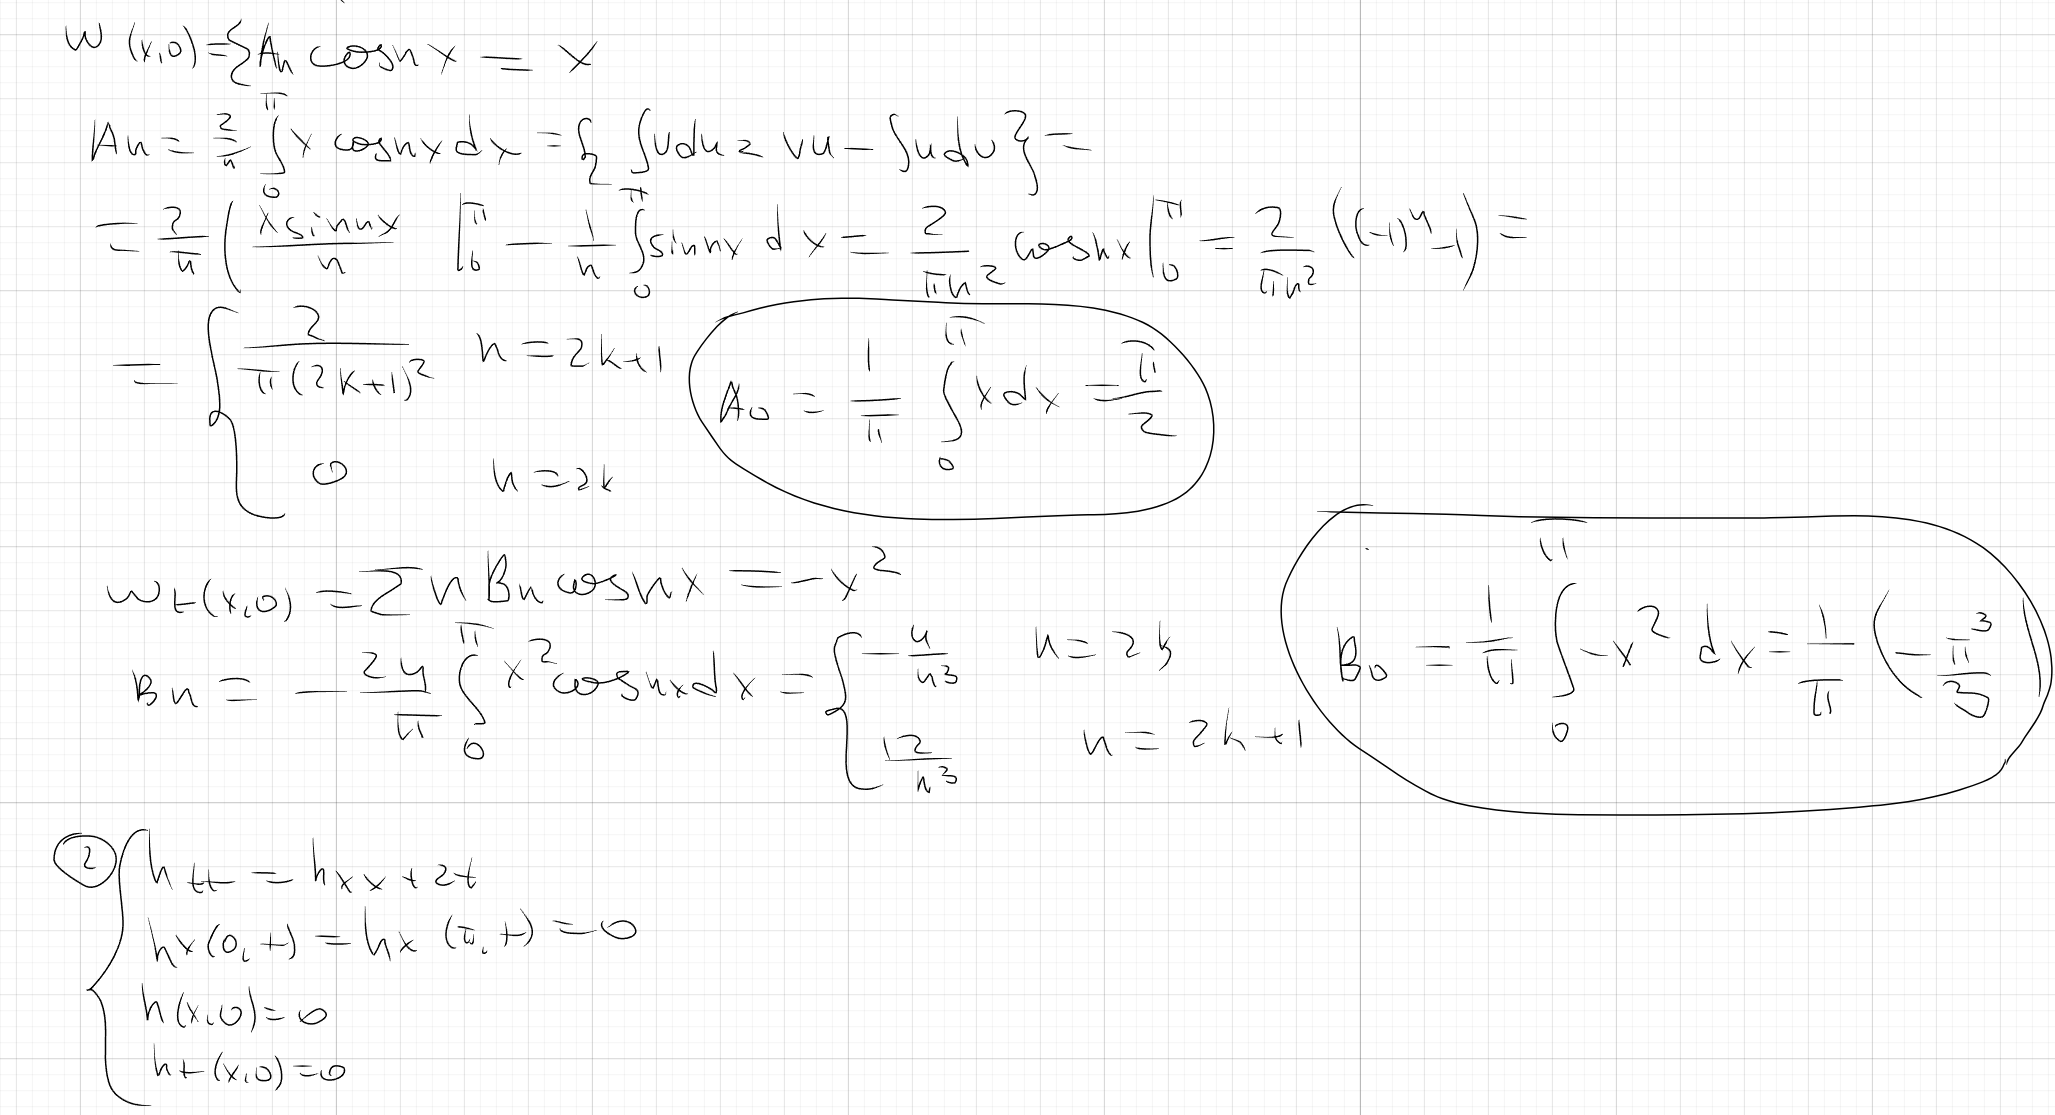 w (x,0) = Σ An cos nx = x
An = 2/π ∫_0^π x cos nx dx = { ∫ v du = vu - ∫ u dv } =
= 2/π ( x sin nx / n |_0^π - 1/n ∫_0^π sin nx dx = 2/(πn²) cos nx |_0^π = 2/(πn²) ((-1)^n - 1) =
= { 2/(π(2k+1)²) n = 2k+1
0 n = 2k
A0 = 1/π ∫_0^π x dx = π/2
wt(x,0) = Σ n Bn cos nx = -x²
Bn = - 24/π ∫_0^π x² cos nx dx = { -4/n³ n = 2k
12/n³ n = 2k+1
B0 = 1/π ∫_0^π -x² dx = 1/π (-π³/3)
② { htt = hxx + 2t
hx(0,t) = hx(π,t) = 0
h(x,0) = 0
ht(x,0) = 0